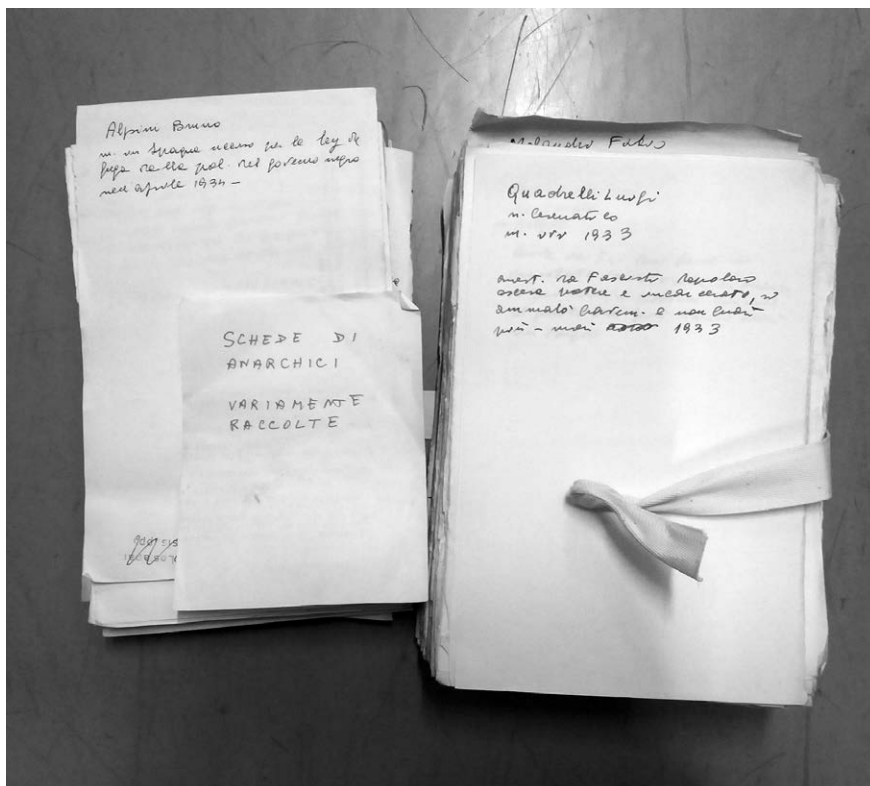 Alpini Bruno
m. in Spagna ucciso per la ley de
fuga dalla pol. del governo negro
nell'aprile 1934 –
SCHEDE DI
ANARCHICI
VARIAMENTE
RACCOLTE
Melandro
Quadrelli Luigi
n. Cesenatico
m. 1933
arrest. da Fascisti
potere e incarcerato, si
ammalò gravem. e non guarì
più – morì 1933